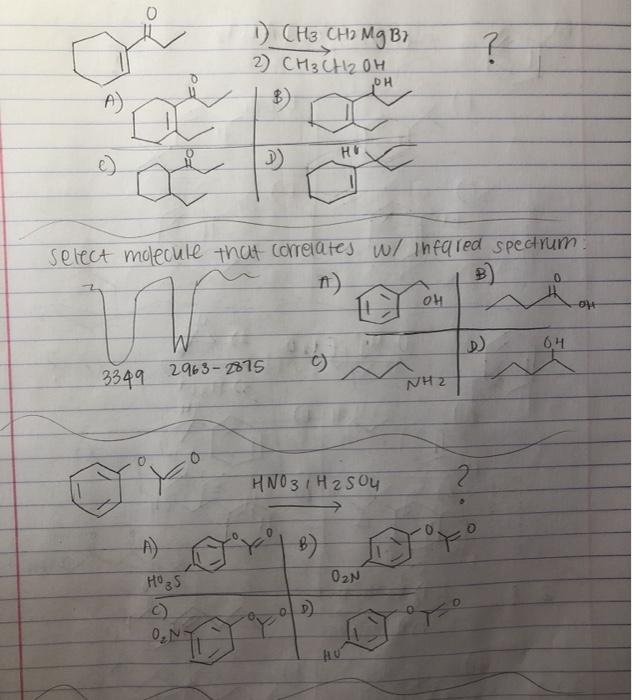 O
1) CH3 CH2 MgBr
2) CH3CH2OH
?
A)
O
B)
OH
C)
O
D)
HO
select molecule that correlates w/ infared spectrum:
3349 2963-2875
A)
OH
B)
O
OH
C)
NH2
D)
OH
O O
HNO3 / H2SO4
?
A)
O O
HO3S
B)
O O
O2N
C)
O O
O2N
D)
O O
HO